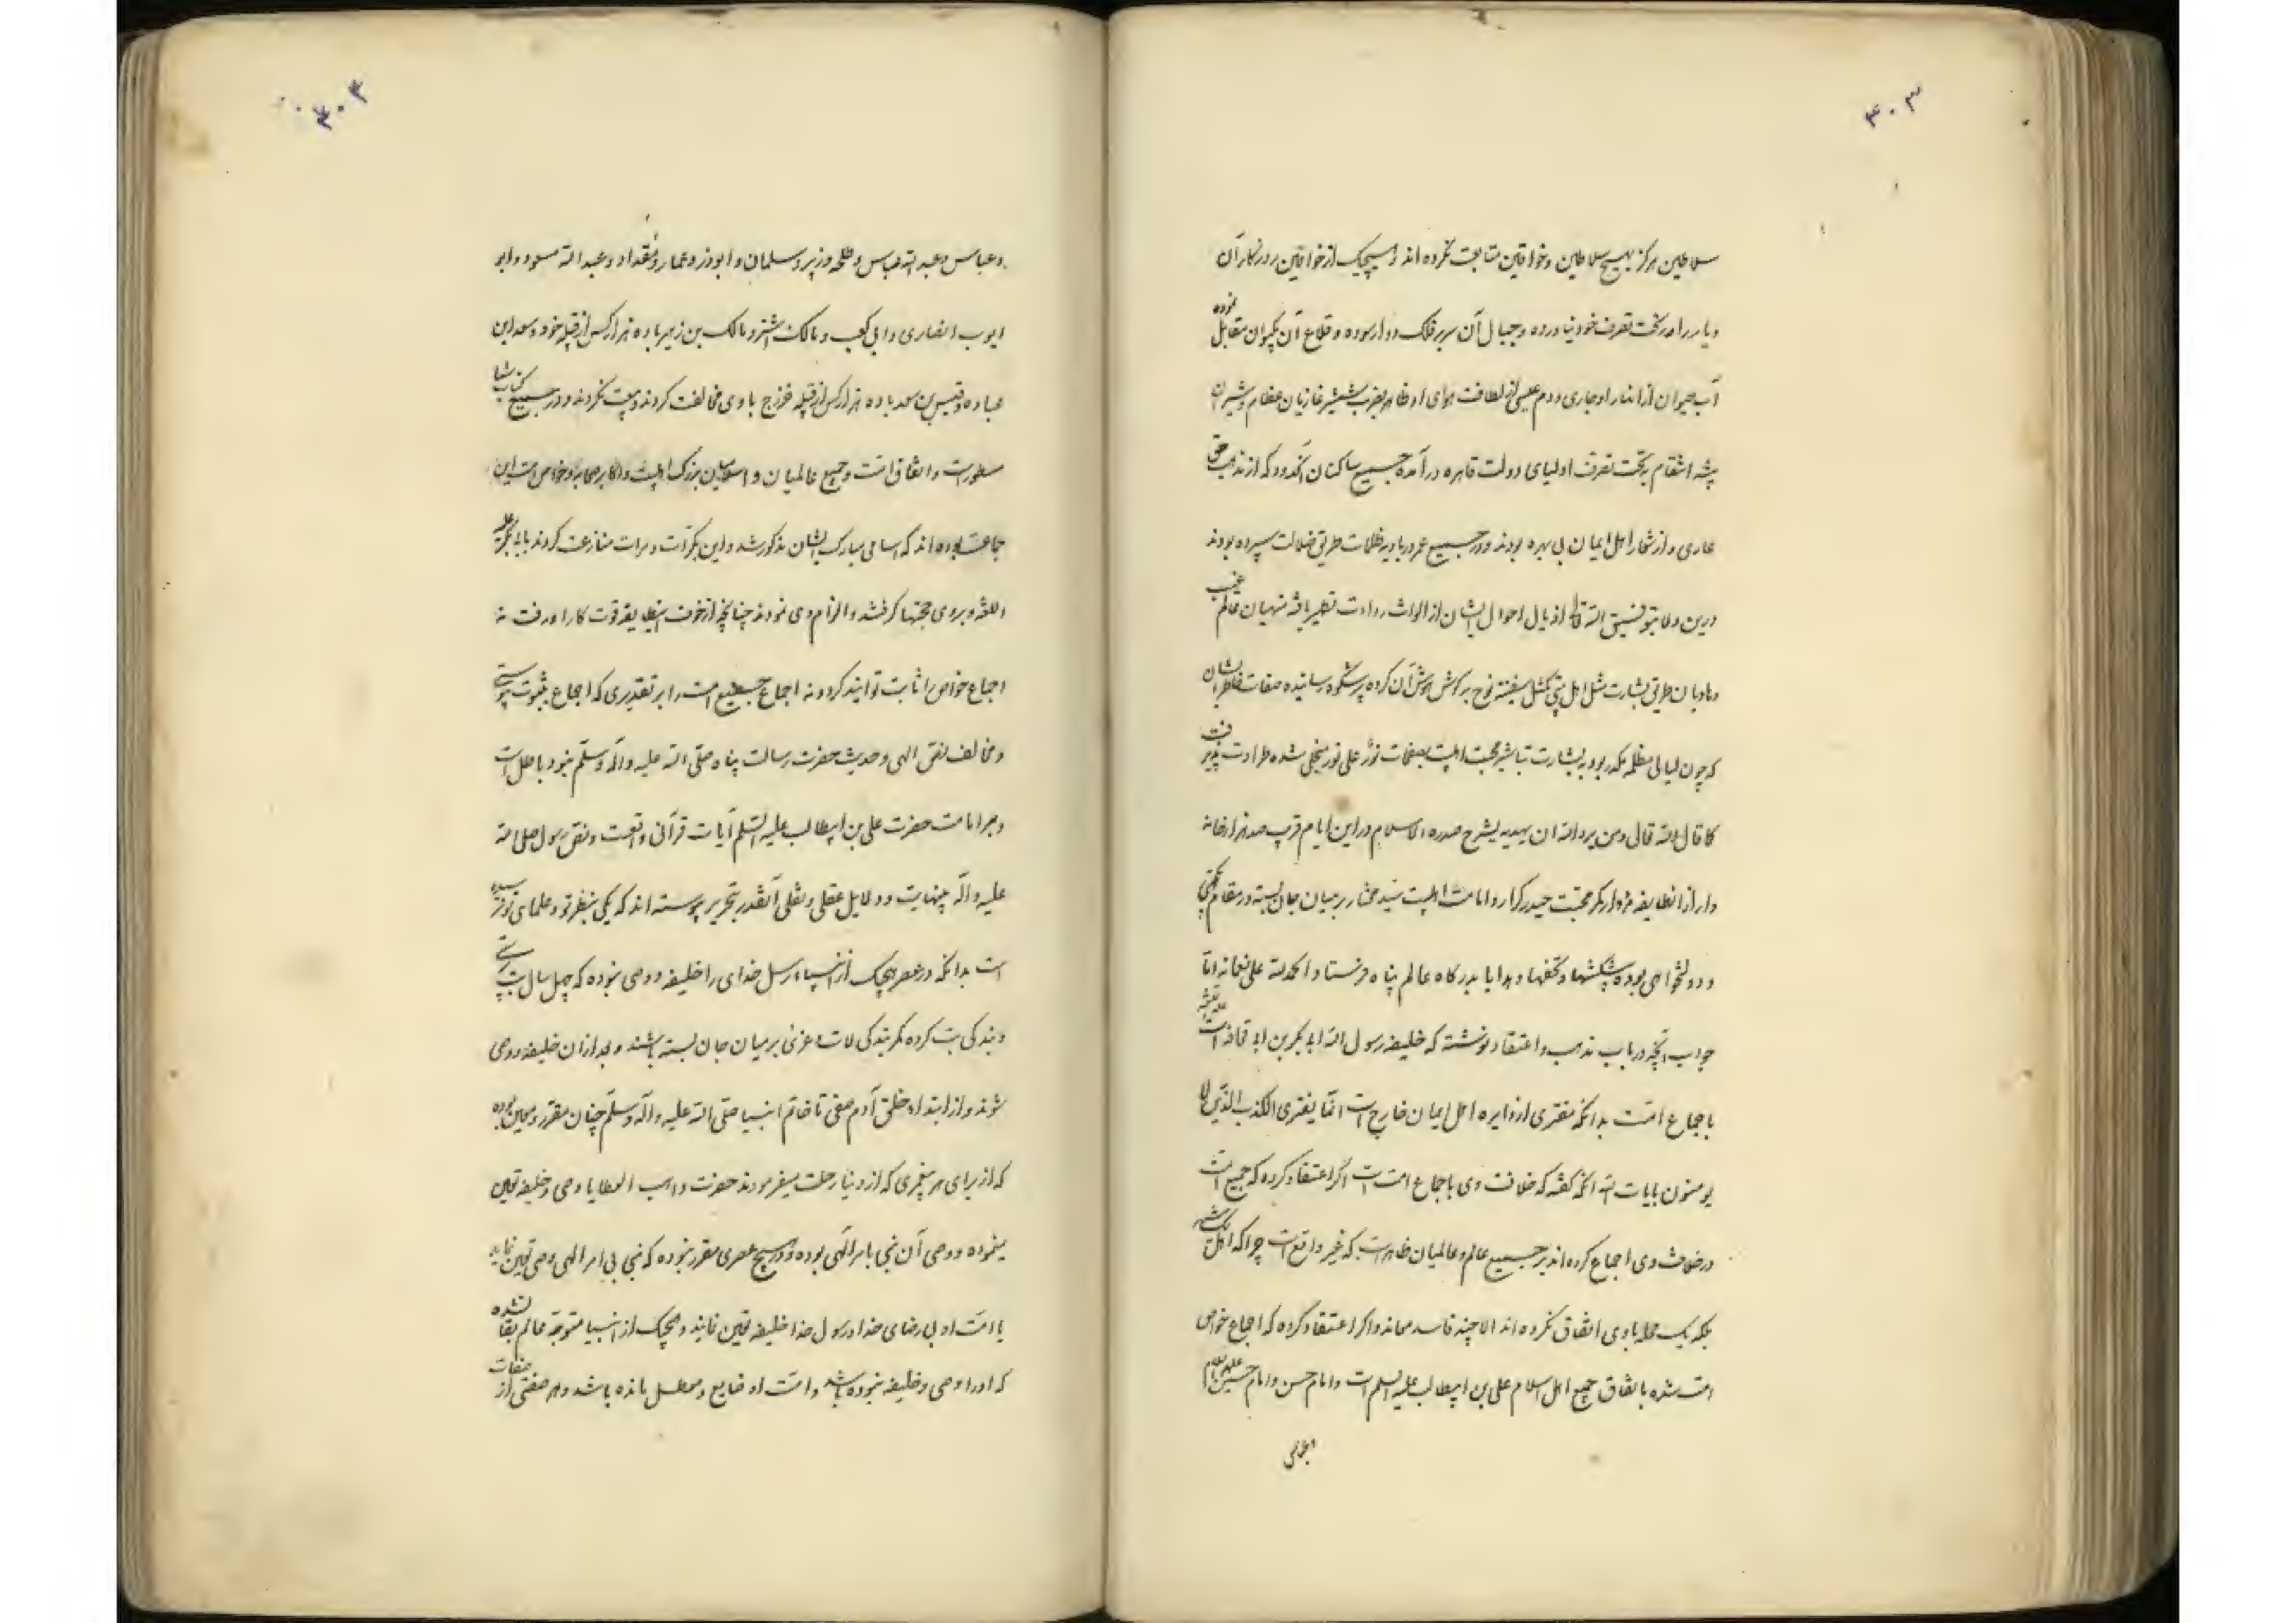 ۳۰۳
سلاطین هرگز بهیچ سلاطین و خواقین متابعت نکرده اند و هیچیک از خواقین روزگار آن
دیار را در تحت تصرف خود نیاورده و جبال آن سر بر فلک دوار سوده و قلاع آن بکیوان مقابل نموده
آب حیوان از انهار او جاری و دم عیسی از لطافت هوای او ظاهر بضرب شمشیر غازیان عظام و شیران
بیشه انتقام بتحت تصرف اولیای دولت قاهره درآمده جمیع ساکنان آنحدود که از مذهب حق
عاری و از شعار اهل ایمان بی بهره بودند و در جمیع عمر در بادیه ظلمات طریق ضلالت سپرده بودند
درین ولا بتوفیق الله تعالی اذیال احوال ایشان از الواث ردائت تطهیر یافته منهیان عالم غیب
و هادیان طریق بشارت مثل اهل بیتی کمثل سفینة نوح بر گوش هوش آن گروه پرشکوه رسانیده صفات خاطر ایشان
که چون لیالی مظلمه مکدر بود به بشارت تباشیر محبت اهلبیت بصفحات نور علی نور منجلی شده طراوت پذیرفت
کما قال الله تعالی و من یرد الله ان یهدیه یشرح صدره للاسلام و در این ایام قرب صد هزار خانه
وار از آنطایفه مزوار کمر محبت حیدر کرار و امامت اهلبیت سید مختار بر میان جان بسته و در مقام یکجهتی
و دولتخواهی بوده پیشکشها و تحفها و هدایا بدرگاه عالم پناه فرستاد و الحمدلله علی نعمائه اما
جواب آنچه در باب مذهب و اعتقاد نوشته که خلیفه رسول الله ابی بکر بن ابی قحافه است
باجماع امت بدانکه مفتری از دایره اهل ایمان خارج است انما یفتری الکذب الذین لا
یومنون بایات الله آنکه گفته که خلافت وی باجماع امت است اگر اعتقاد کرده که جمیع امت
در خلافت وی اجماع کرده اند بر جمیع عالم و عالمیان ظاهر است که غیر واقع است چرا که اهل یک شهر
بلکه یک محله باوی اتفاق نکرده اند الا چند فاسد معاند و اگر اعتقاد کرده که اجماع خواص
امت شده باتفاق جمیع اهل اسلام علی بن ابیطالب علیه السلم است و امام حسن و امام حسین علیهم السلام
۳۰۳
و عباس و عبد الله عباس و طلحه و زبیر و سلمان و ابوذر و عمار و مقداد و عبد الله مسعود و ابو
ایوب انصاری و ابی کعب و مالک اشتر و مالک بن زهیر با ده هزار کس از قبیله خود و سعد ابن
عباده و قیس بن سعد با ده هزار کس از قبیله خزرج باوی مخالفت کردند و بیعت نکردند و در جمیع کتاب شما
مسطور است و اتفاق امت و جمیع عالمیان و اساطین بزرگ اهلبیت و اکابر صحابه و خواص امت این
جماعت بوده اند که اسامی مبارک ایشان مذکور شد و این بکرات و مرات منازعت کردند با ابی بکر علیه
اللعنه و بر وی حجتها گرفتند و الزام وی نمودند چنانچه از خوف اینطایفه قوت کار او رفت نه
اجماع خواص را ثابت توانید کرد و نه اجماع جمیع امت را بر تقدیری که اجماع بثبوت پیوستی
و مخالف نص الهی و حدیث حضرت رسالت پناه صلی الله علیه و آله و سلم نبود باطل است
و بر امامت حضرت علی بن ابیطالب علیه السلم آیات قرآنی واقعست و نص رسول صلی الله
علیه و آله بینهایت و دلایل عقلی و نقلی آنقدر بتحریر پیوسته اند که یکی بنظر تو و علمای تو نرسیده
است بدانکه در عصر هیچیک از انبیاء رسل خدای را خلیفه و وصی نبوده که چهل سال بت پرستی
و بندگی بت کرده کمر بندگی لات و عزی بر میان جان بسته باشند و بعد از آن خلیفه و وصی
شوند و از ابتداء خلق آدم صفی تا خاتم انبیا صلی الله علیه و آله و سلم چنان مقرر و معین بوده
که از برای هر پیغمبری که از دنیا رحلت میفرمودند حضرت واهب العطایا وصی و خلیفه تعیین
مینموده و وصی آن نبی بامر الهی بوده و در هیچ عصری مقرر نبوده که نبی بی امر الهی وصی تعیین نماید
یا امت او بی رضای خدا و رسول خدا خلیفه تعیین نمایند و هیچیک از انبیا متوجه عالم بقا نشده
که او را وصی و خلیفه نبوده باشد و امت او ضایع و معطل مانده باشد و هر صفتی از صفات